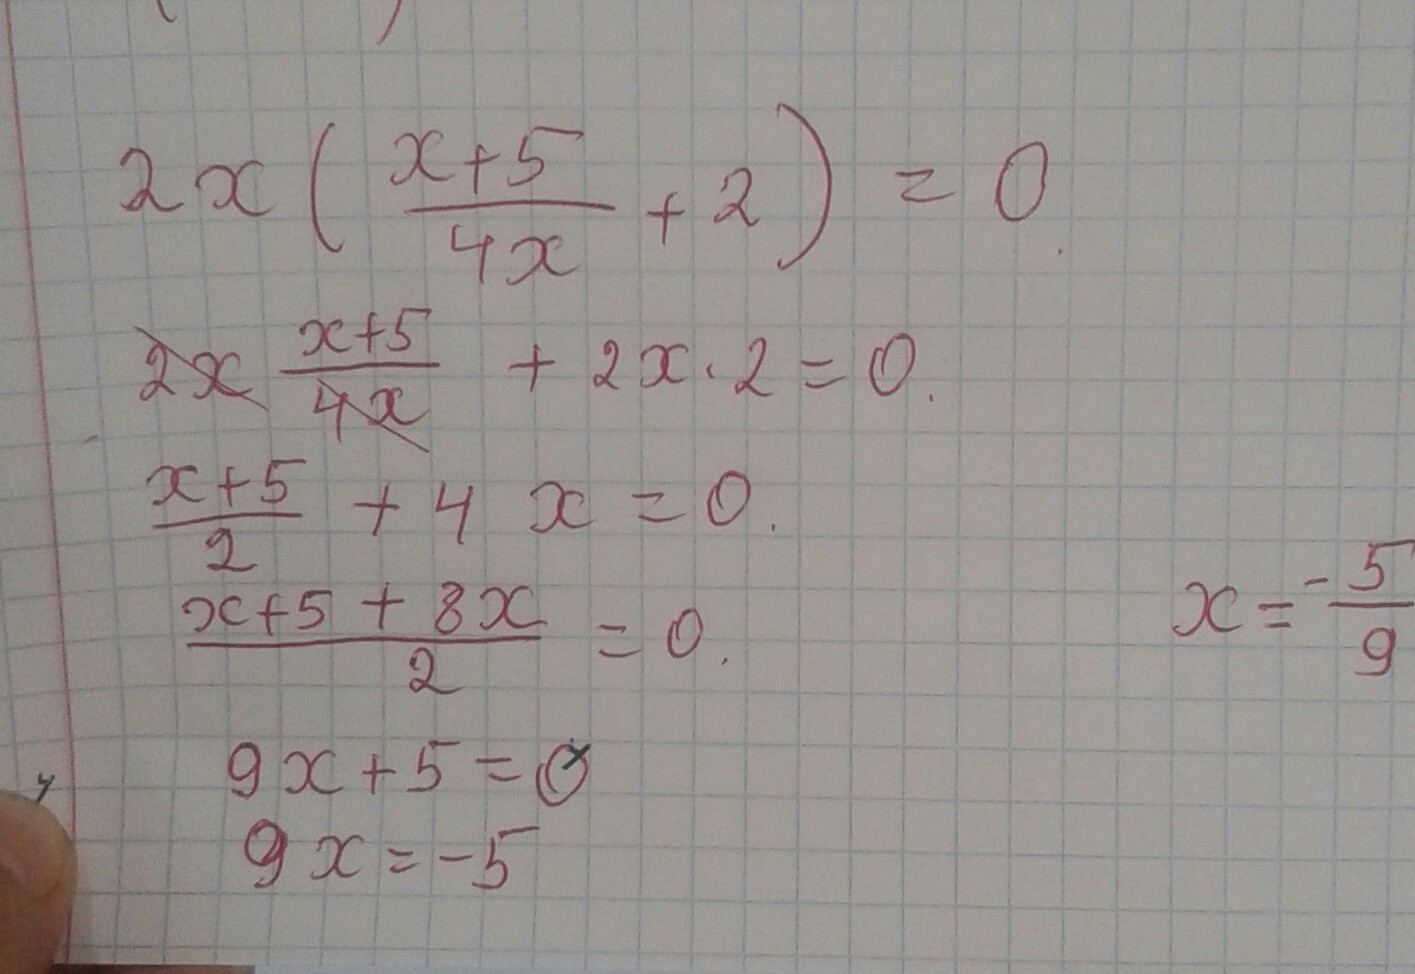 2x ( (x+5)/(4x) + 2 ) = 0.
2x (x+5)/(4x) + 2x · 2 = 0.
(x+5)/2 + 4 x = 0.
(x+5 + 8x)/2 = 0.
x = -5/9
9x + 5 = 0
9x = -5